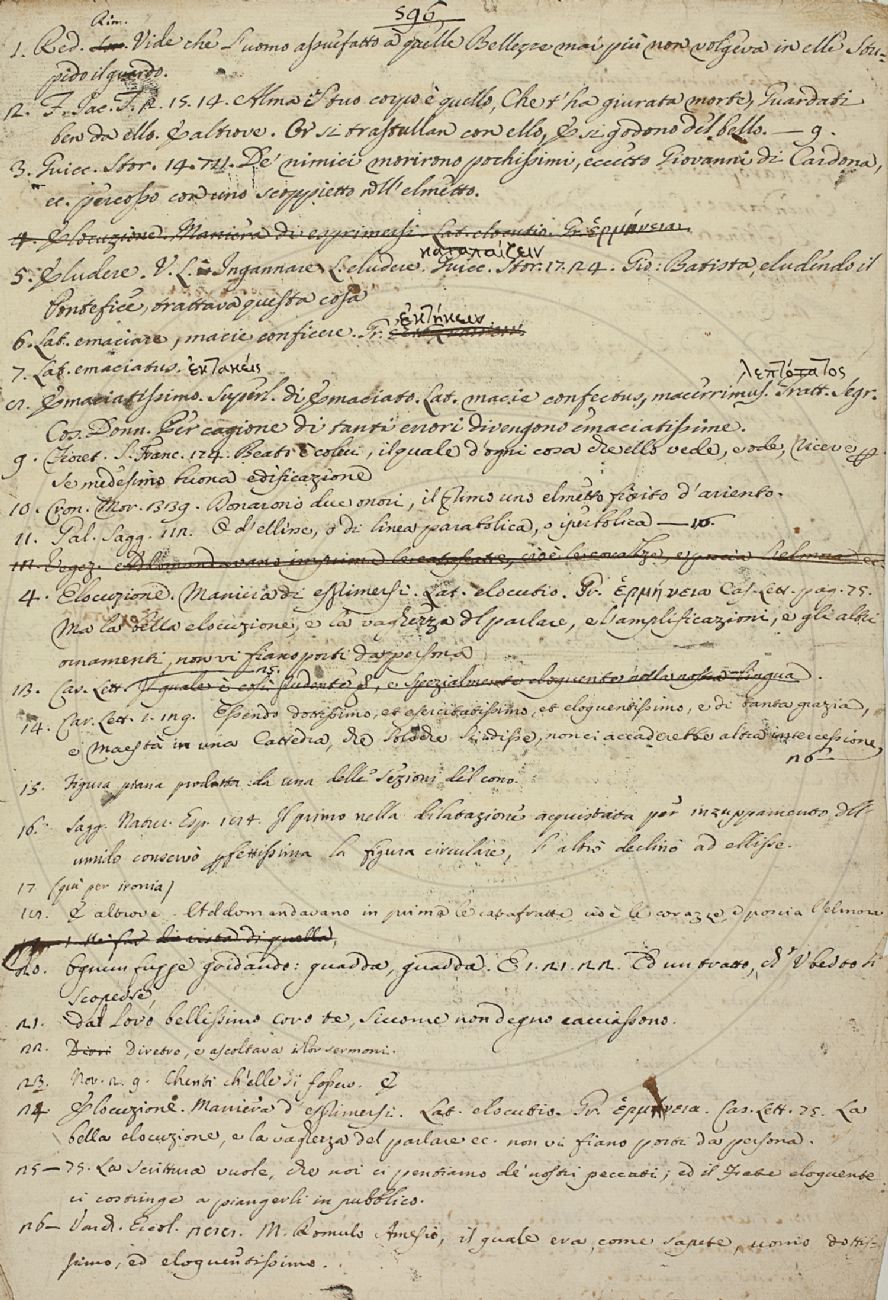 596
Rim.
1. Red. Vide che l'uomo assuefatto a quelle Bellezze mai più non volgeva in esse stu-
pido il guardo.
2. F. Jac. T. 2. 15. 14. Alma il tuo corpo è quello, Che t'ha giurata morte, Guardati
ben da ello. E altrove. Or si trastullan con ello, E si godono del bello. — 9.
3. Guicc. Stor. 14. 741. De' nimici morirono pochissimi, eccetto Giovanni di Cardona,
ec. percosso con uno scoppietto nell'elmetto.
4. Elocuzione. Maniera di esprimersi. Lat. elocutio. Gr. ἑρμήνεια.
καταπαίζειν
5. Eludere. V. L. Ingannare L. eludere. Guicc. Stor. 17. 24. Gio: Batista, eludendo il
Pontefice, trattava questa cosa
ἐκτήκειν
6. Lat. emaciare, macie conficere. Gr.
7. Lat. emaciatus. ἐκτακείς
λεπτότατος
8. Emaciatissimo. Superl. di Emaciato. Lat. macie confectus, macerrimus. Tratt. Segr.
Cos. Donn. Per cagione di tanti errori divengono emaciatissime.
9. Fioret. S. Franc. 174. Beato è colui, il quale d'ogni cosa che ello vede, e ode, riceve
se medesimo buona edificazione
10. Cron. Mor. 339. Donarono due onori, il primo uno elmetto fiorito d'ariento.
11. Gal. Sagg. 112. O d'elline, o di linea parabolica, o iperbolica — 16.
12. Vegez. Addomandavano in prima le catafratte, cioè le corazze, e poscia l'elmora ec.
4. Elocuzione. Maniera di esprimersi. Lat. elocutio. Gr. ἑρμήνεια Cas. Lett. pag. 75.
Ma la bella elocuzione, e la vaghezza del parlare, e l'amplificazioni, e gli altri
ornamenti, non vi fiano porti da persona
25.
13. Car. Lett. Il quale è assai studente, e spezialmente eloquente nella nostra lingua.
14. Car. Lett. 1. 119. Essendo dottissimo, et esercitatissimo, et eloquentissimo, e di tanta grazia,
e maestà in una Catedra, che si udisse, non ci accaderebbe altra intercessione,
26
15. Figura piana prodotta da una delle Sezioni del cono.
16. Sagg. Natur. Esp. 184. Il primo nella dilatazione acquistata per inzuppamento dell'
umido conservò pfettissima la figura circulare, l'altro declinò ad ellisse.
17 (quì per ironia)
18. E altrove. Addomandavano in prima le catafratte, cioè le corazze, e poscia l'elmora
di vista di quella,
20. Ognun fugge gridando: guarda, guarda. E 1. 21. 22. Ed un tratto, ch'Ubbetto si
scoperse,
21. dal loro bellissimo coro te, siccome non degno cacciassono.
22. Dietro diretro, e ascoltava i lor sermoni.
23. Nov. 2. 9. Chenti ch'elle si fosseo. E
24. Elocuzione. Maniera d'esprimersi. Lat. elocutio. Gr. ἑρμήνεια. Cas. Lett. 75. La
bella elocuzione, e la vaghezza del parlare ec. non vi fiano porti da persona.
25 — 75. La scrittura vuole, che noi ci pentiamo de' nostri peccati; ed il Frate eloquente
ci costringe a piangerli in pubblico.
26 — Vard. Ercol. M. Romulo Amaseo, il quale era, come sapete, uomo dottis-
simo, ed eloquentissimo.